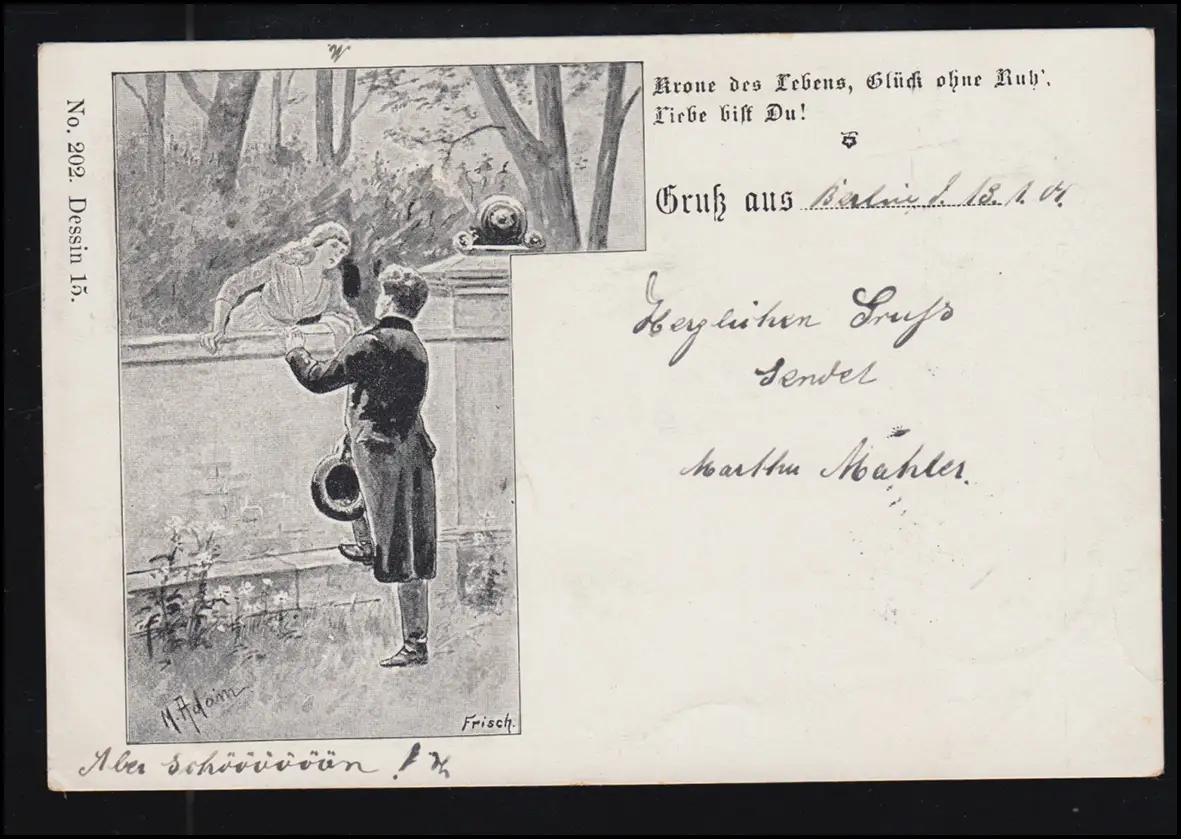 Krone des Lebens, Glück ohne Ruh',
Liebe bist Du!
Gruß aus Berlin d. 13. 1. 01.
No. 202. Dessin 15.
Herzlichen Gruß
sendet
Martha Mähler.
M. Adam
Frisch.
Aber schööööööön !